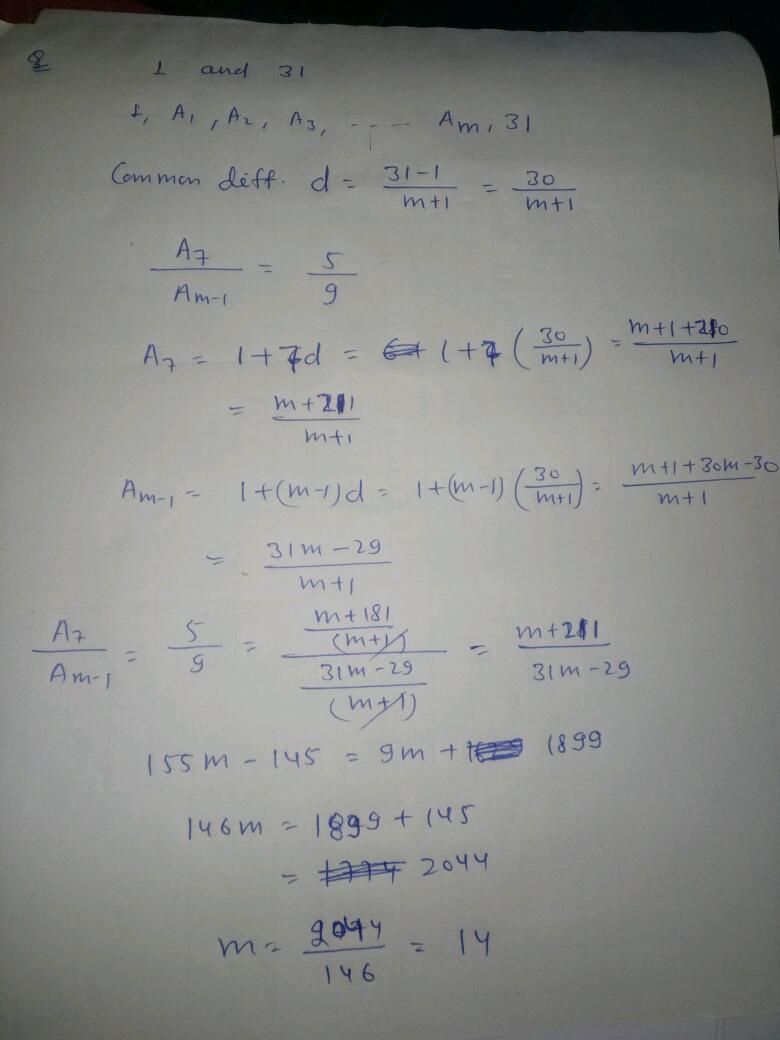 Q 1 and 31
1, A₁, A₂, A₃, ---- Am, 31
Common diff. d = (31-1)/(m+1) = 30/(m+1)
A₇/Am-1 = 5/9
A₇ = 1+7d = 1+7(30/(m+1)) = (m+1+210)/(m+1)
= (m+211)/(m+1)
Am-1 = 1+(m-1)d = 1+(m-1)(30/(m+1)) = (m+1+30m-30)/(m+1)
= (31m-29)/(m+1)
A₇/Am-1 = 5/9 = ((m+181)/(m+1))/((31m-29)/(m+1)) = (m+211)/(31m-29)
155m - 145 = 9m + 1899
146m = 1899 + 145
= 2044
m = 2044/146 = 14